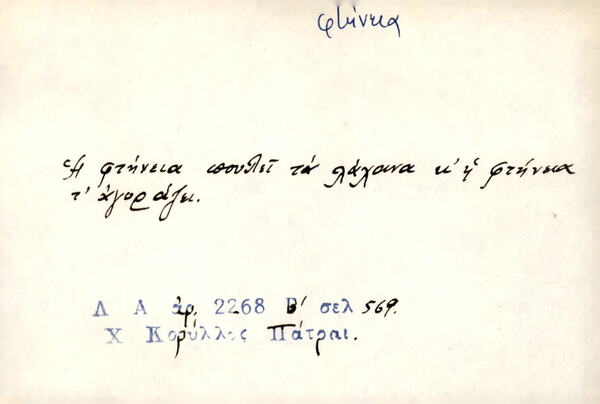 φτήνεια
Ἡ φτήνεια πουλεῖ τά λάχανα κ' ἡ φτήνεια
τ' ἀγοράζει.
Λ Α ἀρ. 2268 Β' σελ 569.
Χ Κορύλλος Πάτραι.